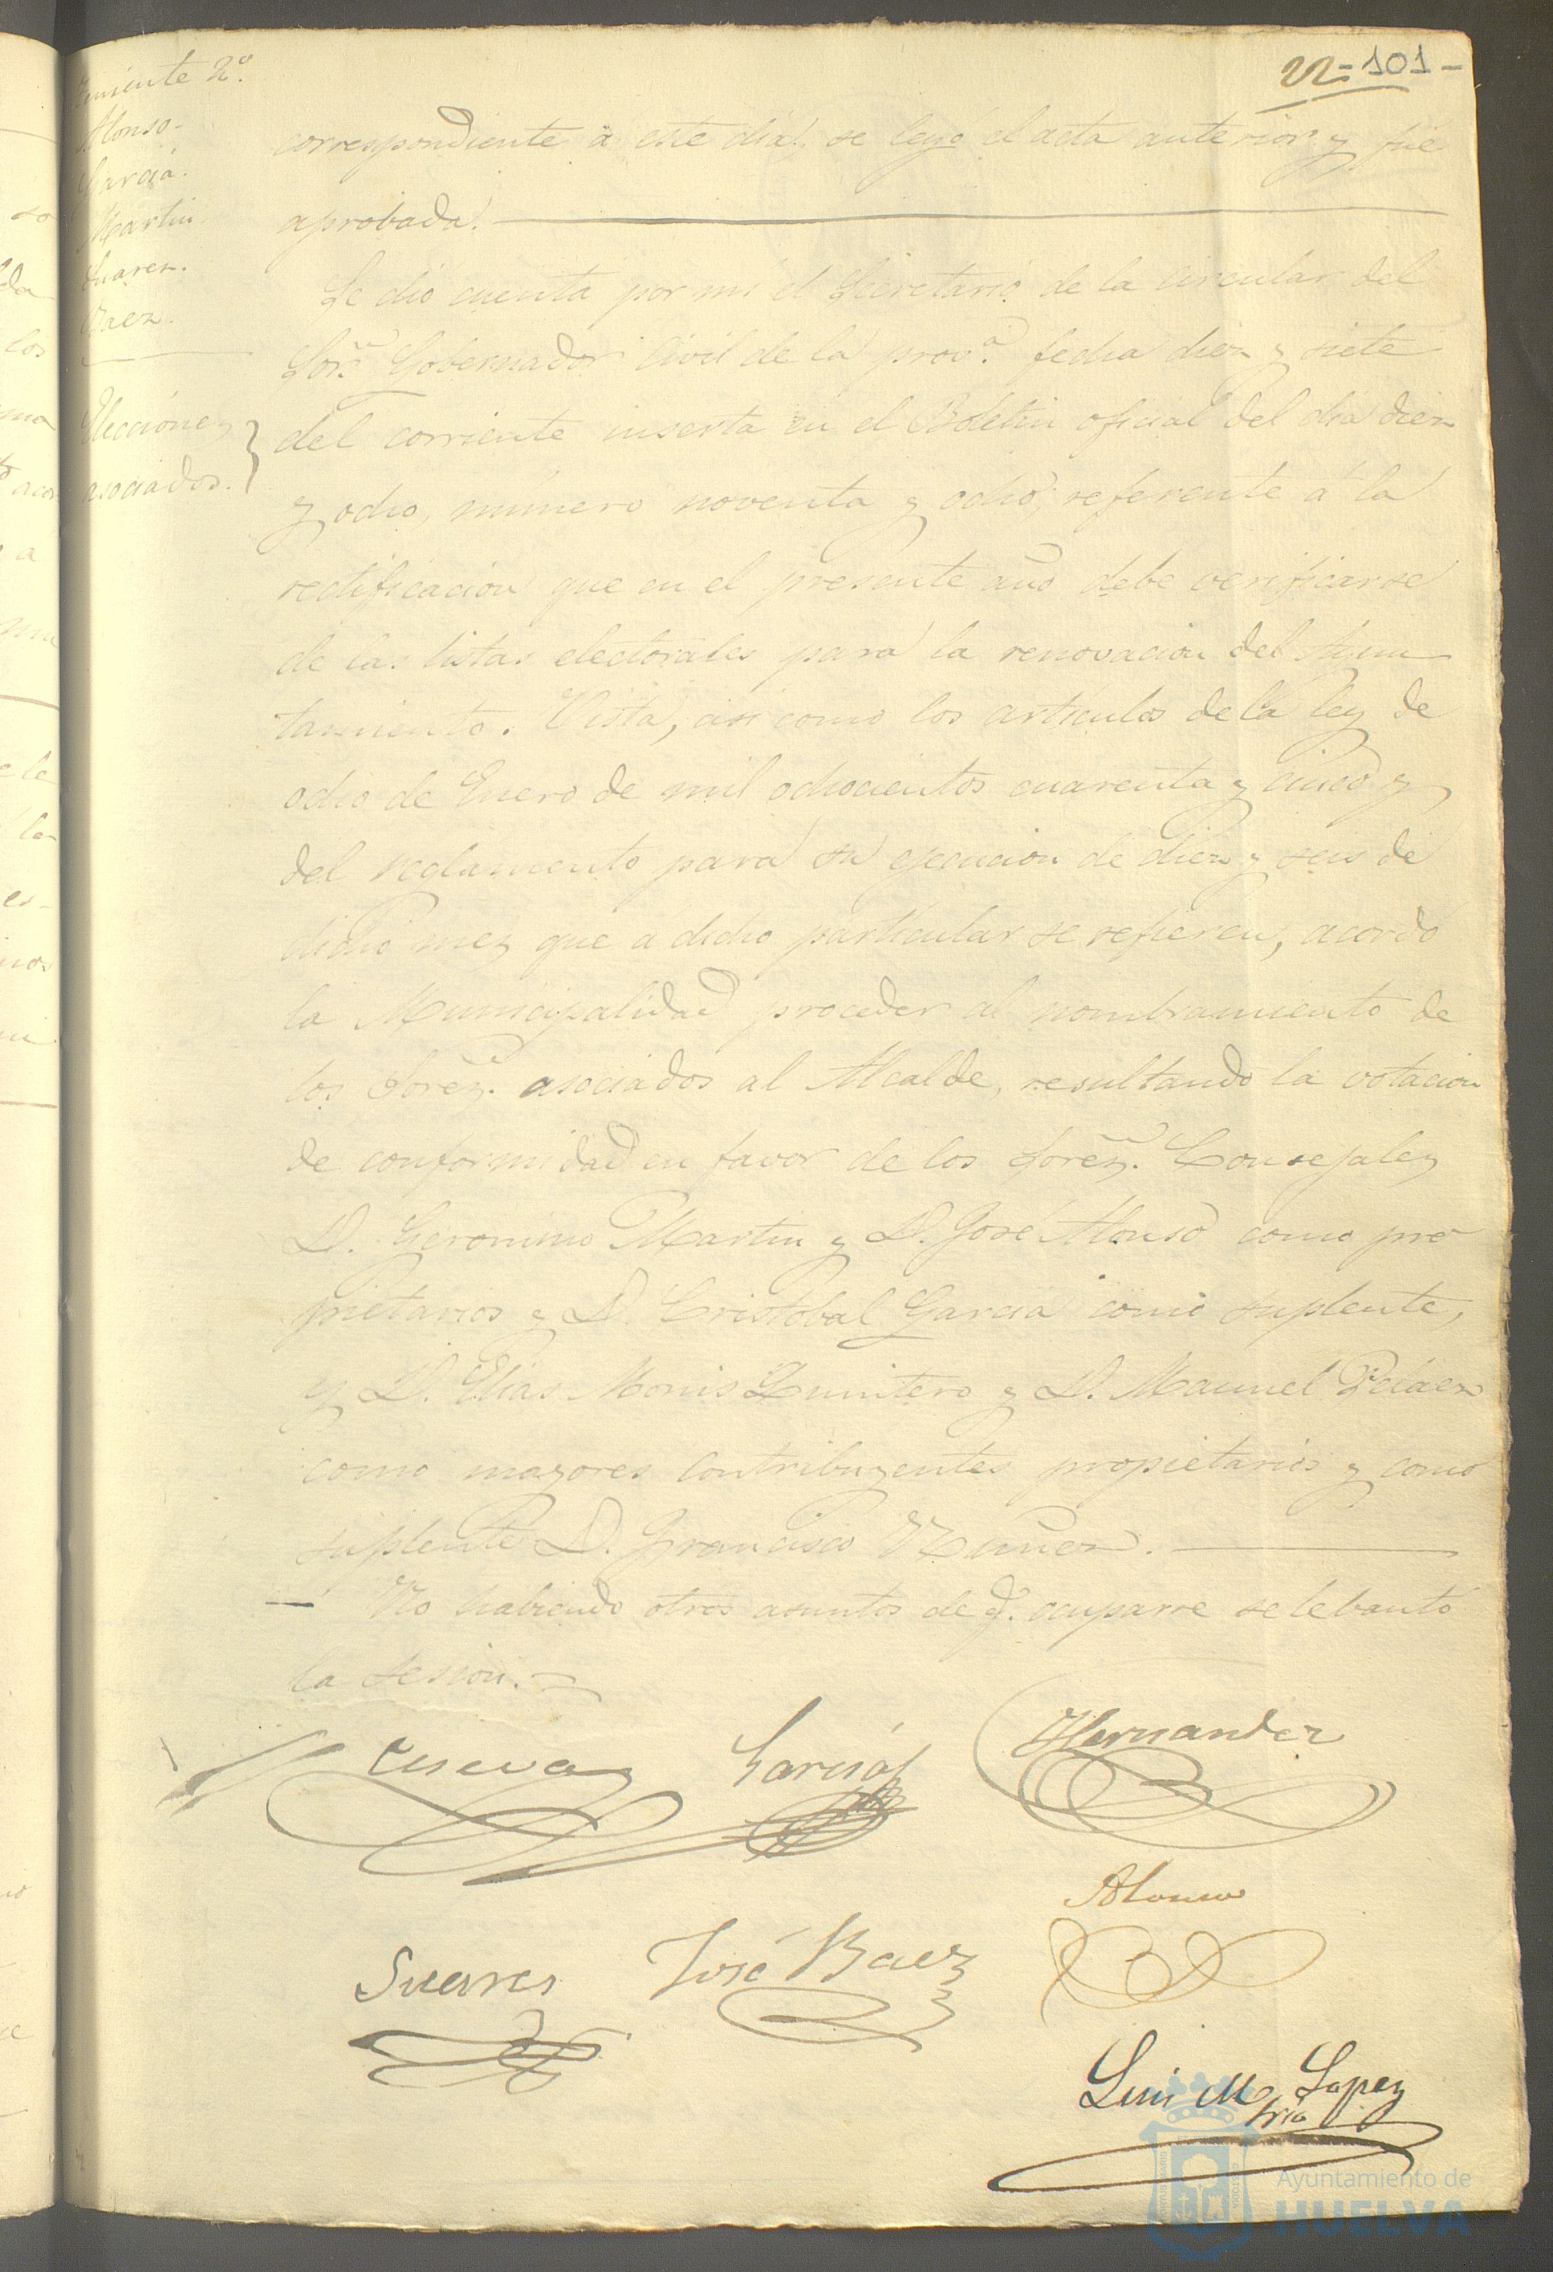 22 - 101 -
Teniente 2º.
Alonso.
Garcia.
Martin
Suarez.
Baez.
Elecciones
asociados.
correspondiente á este dia, se leyó el acta anterior y fué
aprobada.
Se dio cuenta por mi el Secretario de la circular del
Sor. Gobernador Civil de la prova. fecha diez y siete
del corriente inserta en el Boletin oficial del dia diez
y ocho, número noventa y ocho referente á la
rectificacion que en el presente año debe verificarse
de las listas electorales para la renovacion del Ayun
tamiento. Vista, asi como los articulos de la ley de
ocho de Enero de mil ochocientos cuarenta y cinco y
del reglamento para su ejecucion de diez y seis de
dicho mes que á dicho particular se refieren, acordó
la Municipalidad proceder al nombramiento de
los Sores. asociados al Alcalde, resultando la votacion
de conformidad en favor de los Sores. Consejales
D. Geronimo Martin y D. José Alonso como pro
pietarios y D. Cristobal Garcia como suplente,
y D. Elias Monis Quintero y D. Manuel Peláez
como mayores contribuyentes propietarios y como
suplente D. Francisco Nuñez.
No habiendo otros asuntos de q. ocuparse se lebantó
la sesion.
Cueva Garcia Hernandez
Alonso
Suares José Baez
Luis M Lopez
Srio
Ayuntamiento de
HUELVA